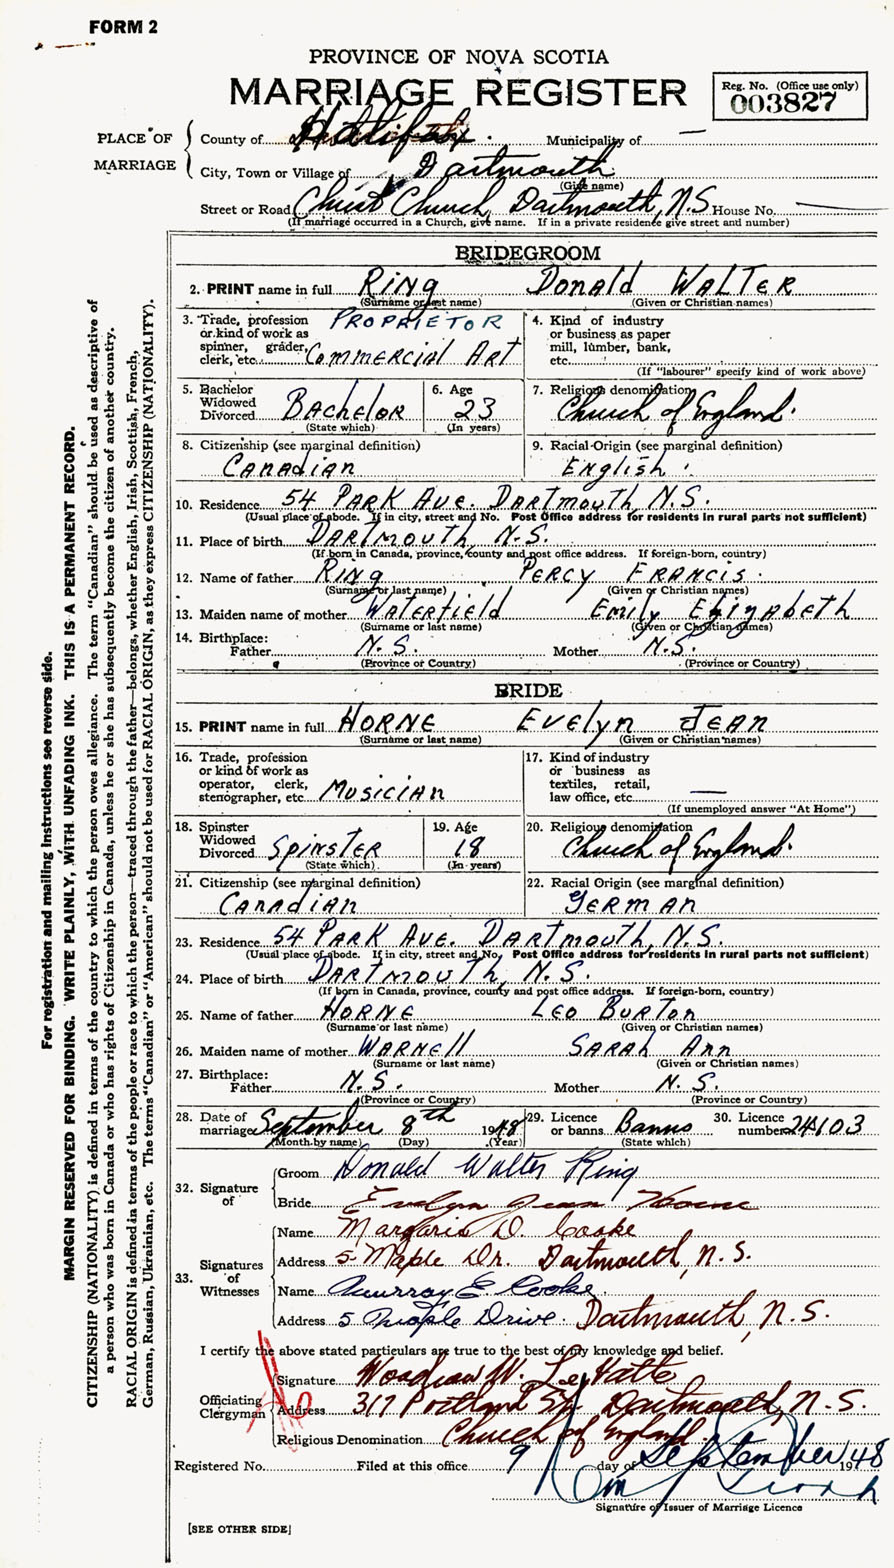 FORM 2
PROVINCE OF NOVA SCOTIA
MARRIAGE REGISTER
Reg. No. (Office use only)
003827
PLACE OF MARRIAGE
County of Halifax Municipality of —
City, Town or Village of Dartmouth
(Give name)
Street or Road Christ Church, Dartmouth, N.S House No. —
(If marriage occurred in a Church, give name. If in a private residence give street and number)
BRIDEGROOM
2. PRINT name in full Ring Donald Walter
(Surname or last name) (Given or Christian names)
3. Trade, profession or kind of work as spinner, grader, clerk, etc. Proprietor Commercial Art
4. Kind of industry or business as paper mill, lumber, bank, etc.
(If "labourer" specify kind of work above)
5. Bachelor Widowed Divorced Bachelor
(State which)
6. Age 23
(In years)
7. Religious denomination Church of England.
8. Citizenship (see marginal definition)
Canadian
9. Racial Origin (see marginal definition)
English.
10. Residence 54 Park Ave. Dartmouth N.S.
(Usual place of abode. If in city, street and No. Post Office address for residents in rural parts not sufficient)
11. Place of birth Dartmouth N.S.
(If born in Canada, province, county and post office address. If foreign-born, country)
12. Name of father Ring Percy Francis.
(Surname or last name) (Given or Christian names)
13. Maiden name of mother Waterfield Emily Elizabeth
(Surname or last name) (Given or Christian names)
14. Birthplace:
Father N.S. Mother N.S.
(Province or Country) (Province or Country)
BRIDE
15. PRINT name in full Horne Evelyn Jean
(Surname or last name) (Given or Christian names)
16. Trade, profession or kind of work as operator, clerk, stenographer, etc. Musician
17. Kind of industry or business as textiles, retail, law office, etc. —
(If unemployed answer "At Home")
18. Spinster Widowed Divorced Spinster
(State which)
19. Age 18
(In years)
20. Religious denomination Church of England.
21. Citizenship (see marginal definition)
Canadian
22. Racial Origin (see marginal definition)
German
23. Residence 54 Park Ave. Dartmouth, N.S.
(Usual place of abode. If in city, street and No. Post Office address for residents in rural parts not sufficient)
24. Place of birth Dartmouth, N.S.
(If born in Canada, province, county and post office address. If foreign-born, country)
25. Name of father Horne Leo Burton
(Surname or last name) (Given or Christian names)
26. Maiden name of mother Warnell Sarah Ann
(Surname or last name) (Given or Christian names)
27. Birthplace:
Father N.S. Mother N.S.
(Province or Country) (Province or Country)
28. Date of marriage September 8th 1948
(Month by name) (Day) (Year)
29. Licence or banns Banns
(State which)
30. Licence number 24103
32. Signature of
Groom Donald Walter Ring
Bride Evelyn Jean Horne
33. Signatures of Witnesses
Name Margaris D. Cooke
Address 5 Maple Dr. Dartmouth, N.S.
Name Murray E Cooke.
Address 5 Maple Drive. Dartmouth, N.S.
I certify the above stated particulars are true to the best of my knowledge and belief.
Officiating Clergyman
Signature Woodrow W. LeVatte
Address 317 Portland St. Dartmouth, N.S.
Religious Denomination Church of England.
Registered No. Filed at this office 9 day of September 1948
Signature of Issuer of Marriage Licence
[SEE OTHER SIDE]
For registration and mailing instructions see reverse side.
MARGIN RESERVED FOR BINDING. WRITE PLAINLY, WITH UNFADING INK. THIS IS A PERMANENT RECORD.
CITIZENSHIP (NATIONALITY) is defined in terms of the country to which the person owes allegiance. The term "Canadian" should be used as descriptive of
a person who was born in Canada or who has rights of Citizenship in Canada, unless he or she has subsequently become the citizen of another country.
RACIAL ORIGIN is defined in terms of the people or race to which the person—traced through the father—belongs, whether English, Irish, Scottish, French,
German, Russian, Ukrainian, etc. The terms "Canadian" or "American" should not be used for RACIAL ORIGIN, as they express CITIZENSHIP (NATIONALITY).